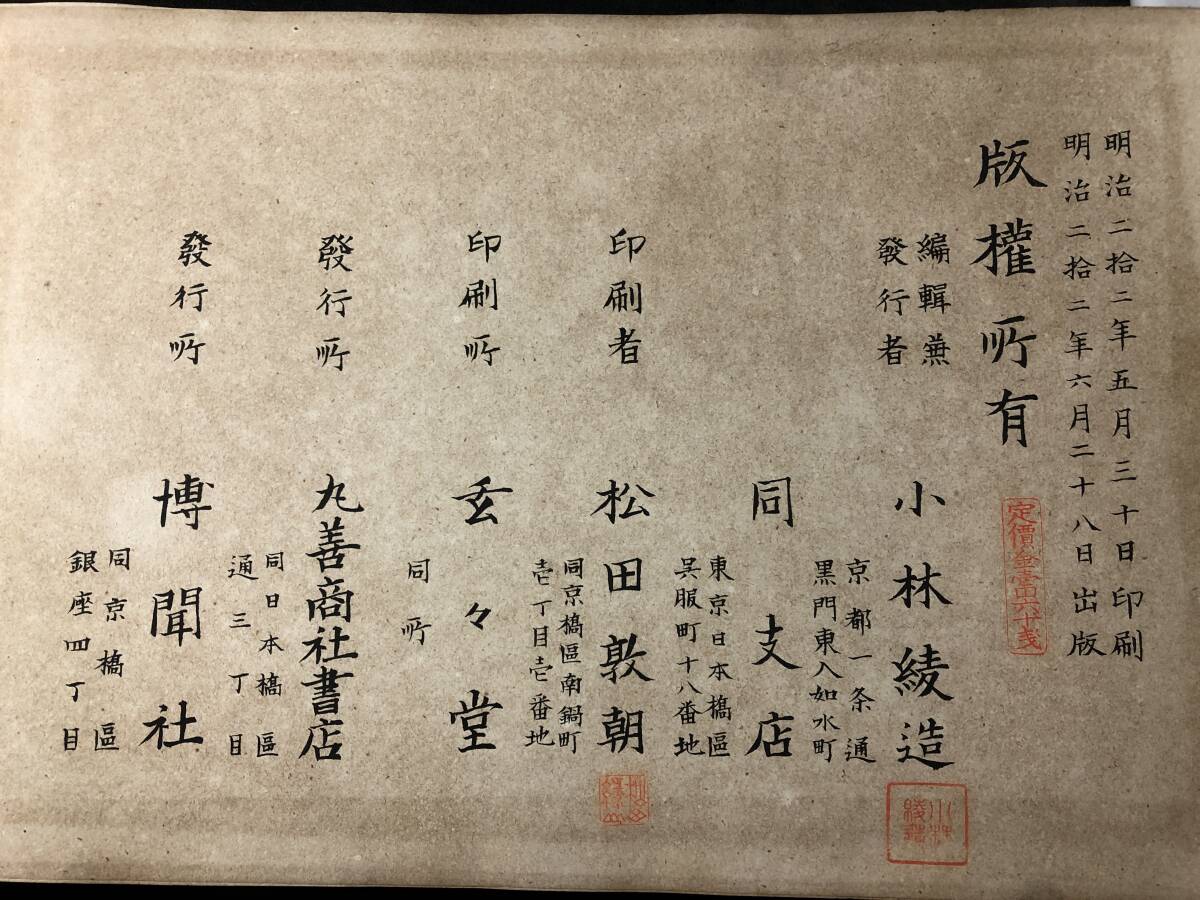 明治二拾二年五月三十日印刷
明治二拾二年六月二十八日出版
版權所有
定價金壹円六十戔
編輯兼
發行者
京都一条通
黒門東入如水町
小林綾造
小林
綾造
東京日本橋區
呉服町十八番地
同支店
印刷者
同京橋區南鍋町
壱丁目壱番地
松田敦朝
印刷所
同所
玄々堂
發行所
同日本橋區
通三丁目
丸善商社書店
發行所
同京橋區
銀座四丁目
博聞社